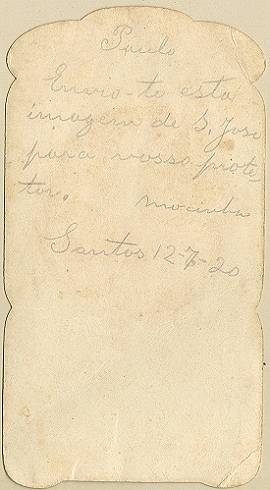 Paulo
Envio-te esta
imagem de S. José
para nosso prote-
tor.
Mocinha
Santos 12-7-20